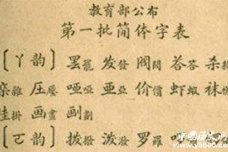 教育部公布
第一批简体字表
〔ㄚ韵〕罢罷 发發 阀閥 答荅 杀
杂雜 压壓 哑啞 亚亞 价價 虾蝦 袜
挂掛 画畫 划劃
〔ㄛ韵〕拨撥 泼潑 罗羅